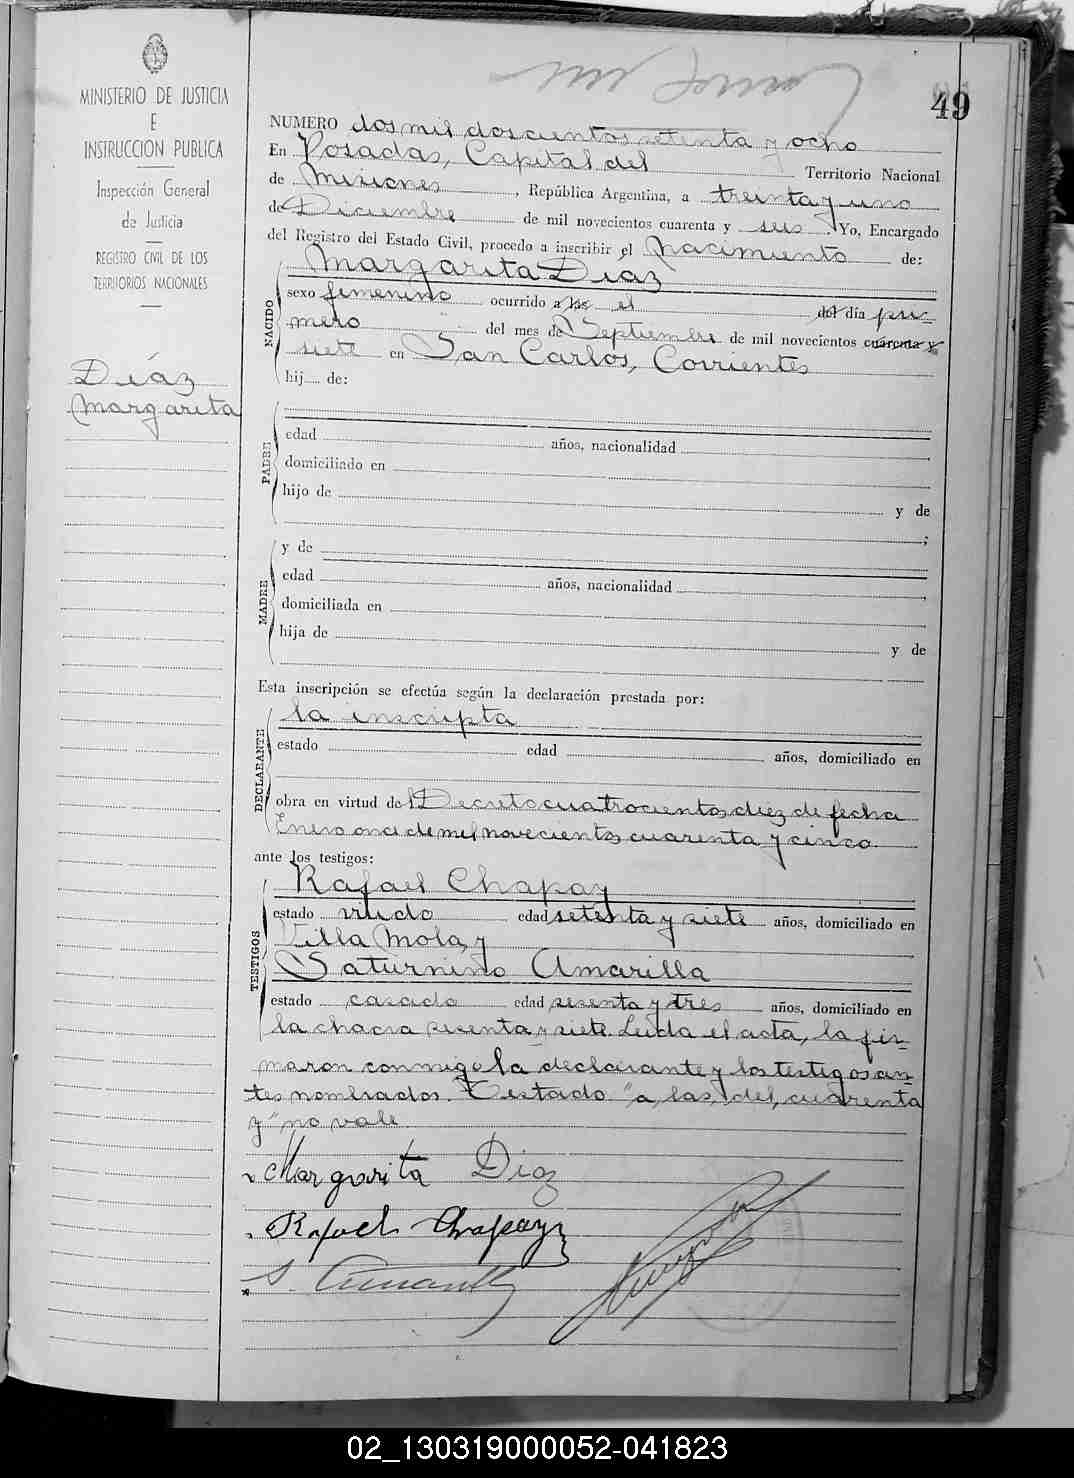 49
MINISTERIO DE JUSTICIA
E
INSTRUCCIÓN PÚBLICA
Inspección General
de Justicia
REGISTRO CIVIL DE LOS
TERRITORIOS NACIONALES
Díaz
Margarita
NUMERO dos mil doscientos setenta y ocho
En Posadas, Capital del Territorio Nacional
de Misiones, República Argentina, a treinta y uno
de Diciembre de mil novecientos cuarenta y seis. Yo, Encargado
del Registro del Estado Civil, procedo a inscribir el Nacimiento de:
NACIDO
Margarita Diaz
sexo femenino ocurrido a las el del día pri-
mero del mes de Septiembre de mil novecientos cuarenta y
siete en San Carlos, Corrientes
hij de:
PADRE
edad años, nacionalidad
domiciliado en
hijo de y de
;
MADRE
y de
edad años, nacionalidad
domiciliada en
hija de y de
Esta inscripción se efectúa según la declaración prestada por:
DECLARANTE
la inscripta
estado edad años, domiciliado en
obra en virtud del Decreto cuatrocientos diez de fecha
Enero once de mil novecientos cuarenta y cinco.
ante los testigos:
TESTIGOS
Rafael Chapay
estado viudo edad setenta y siete años, domiciliado en
Villa Mola, y
Saturnino Amarilla
estado casado edad sesenta y tres años, domiciliado en
la chacra sesenta y siete. Leida el acta, la fir-
maron conmigo la declarante y los testigos an-
tes nombrados. Testado "a, las, del, cuarenta
y" no vale.
Margarita Diaz
Rafael Chapay
S. Amarilla
02_130319000052-041823